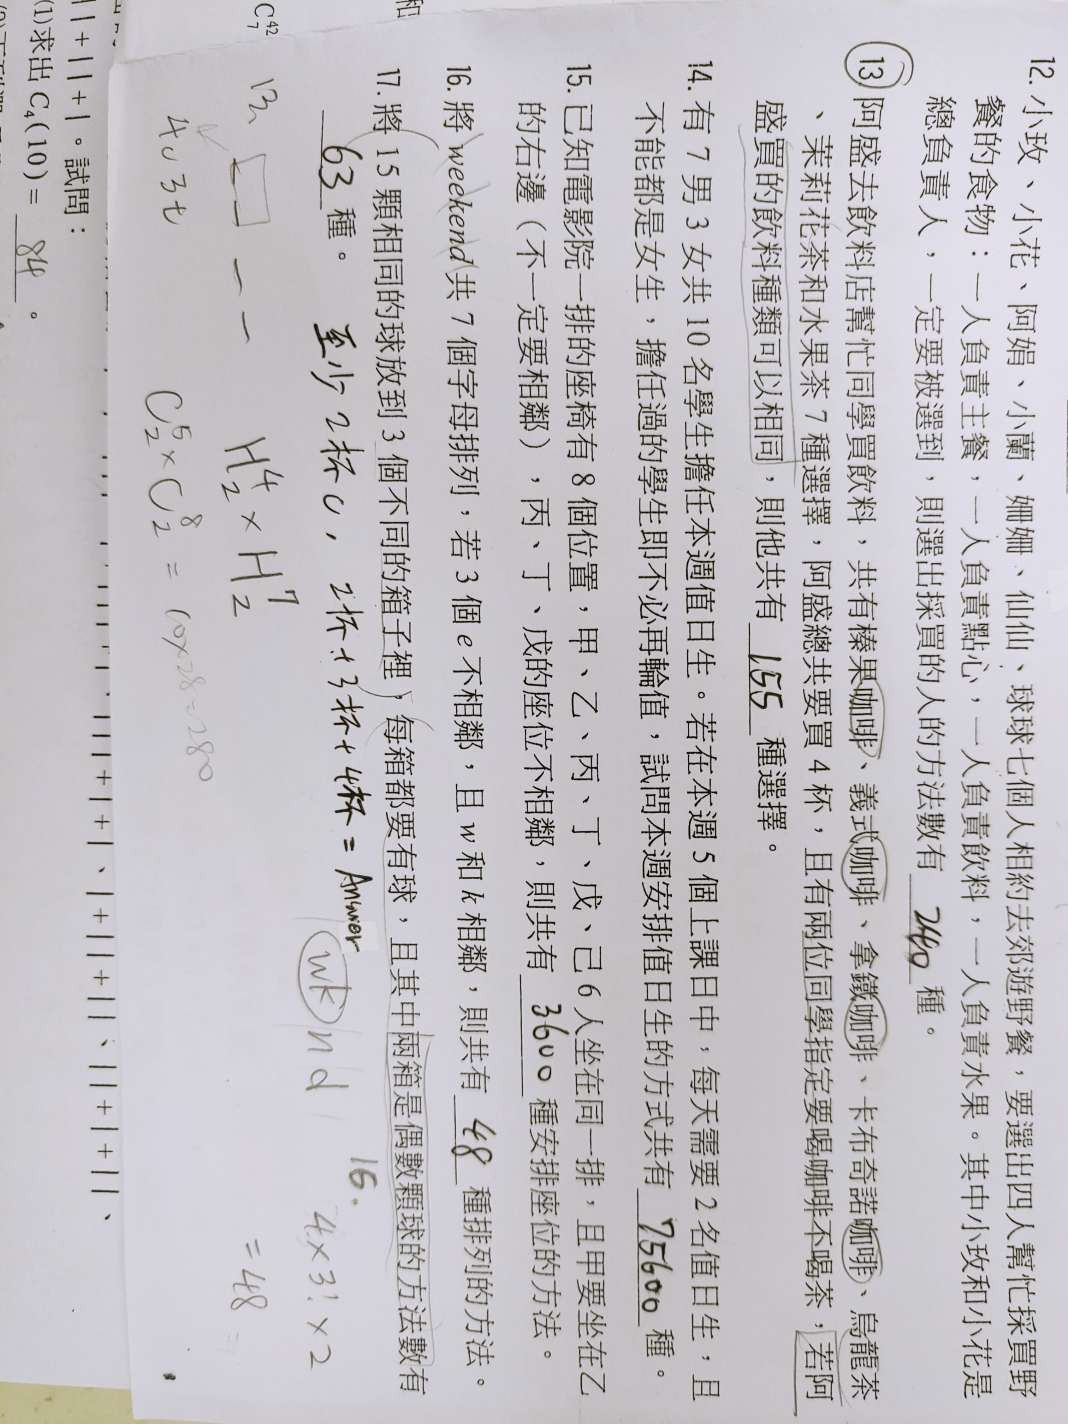 12. 小玫、小花、阿娟、小蘭、姍姍、仙仙、球球七個人相約去郊遊野餐，要選出四人幫忙採買野
餐的食物：一人負責主餐，一人負責點心，一人負責飲料，一人負責水果。其中小玫和小花是
總負責人，一定要被選到，則選出採買的人的方法數有 240 種。
13. 阿盛去飲料店幫忙同學買飲料，共有榛果咖啡、義式咖啡、拿鐵咖啡、卡布奇諾咖啡、烏龍茶
、茉莉花茶和水果茶 7 種選擇，阿盛總共要買 4 杯，且有兩位同學指定要喝咖啡不喝茶，若阿
盛買的飲料種類可以相同，則他共有 155 種選擇。
14. 有 7 男 3 女共 10 名學生擔任本週值日生。若在本週 5 個上課日中，每天需要 2 名值日生，且
不能都是女生，擔任過的學生即不必再輪值，試問本週安排值日生的方式共有 75600 種。
15. 已知電影院一排的座椅有 8 個位置，甲、乙、丙、丁、戊、己 6 人坐在同一排，且甲要坐在乙
的右邊（不一定要相鄰），丙、丁、戊的座位不相鄰，則共有 3600 種安排座位的方法。
16. 將 weekend 共 7 個字母排列，若 3 個 e 不相鄰，且 w 和 k 相鄰，則共有 48 種排列的方法。
17. 將 15 顆相同的球放到 3 個不同的箱子裡，每箱都要有球，且其中兩箱是偶數顆球的方法數有
63 種。
至少2杯c，2杯+3杯+4杯=Answer
wk n d
16.
4×3!×2
=48
13.
4c 3t
H⁴₂×H⁷₂
C⁵₂×C⁸₂=10×28=280
和
C⁴²₇
||+||+|。試問：
(1)求出 C₄(10) = 84 。